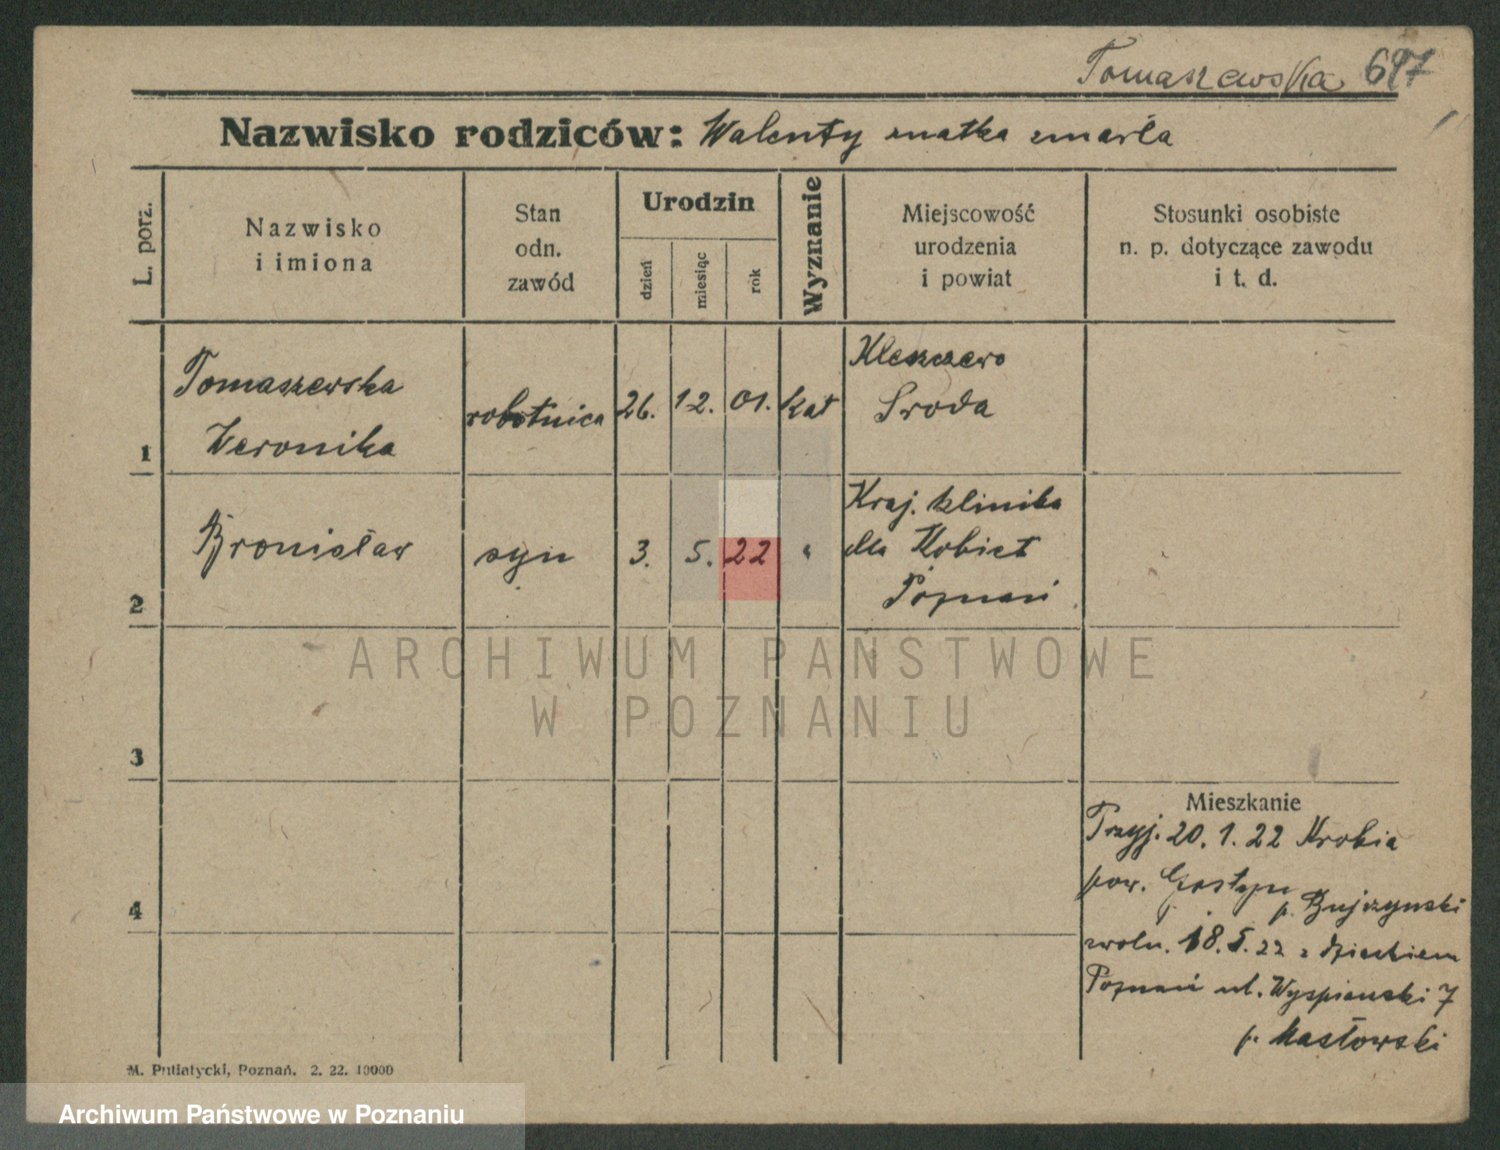 Tomaszewska 697
Nazwisko rodziców: Walenty matka zmarła
L. porz.
Nazwisko
i imiona
Stan
odn.
zawód
Urodzin
dzień
miesiąc
rok
Wyznanie
Miejscowość
urodzenia
i powiat
Stosunki osobiste
n. p. dotyczące zawodu
i t. d.
1
Tomaszewska
Weronika
robotnica
26. 12. 01.
kat
Kleszczewo
Sroda
2
Bronisław
syn
3. 5. 22 "
Kraj. klinika
dla Kobiet
Poznań
3
4
Mieszkanie
Przyj. 20. 1. 22 Krobia
pow. Gostyn
p. Bujzynski
zwoln. 18. 5. 22 z dzieckiem
Poznań ul. Wyspianski 7
p. Masłowski
M. Putiatycki, Poznań. 2. 22. 10000
ARCHIWUM PAŃSTWOWE
W POZNANIU
Archiwum Państwowe w Poznaniu